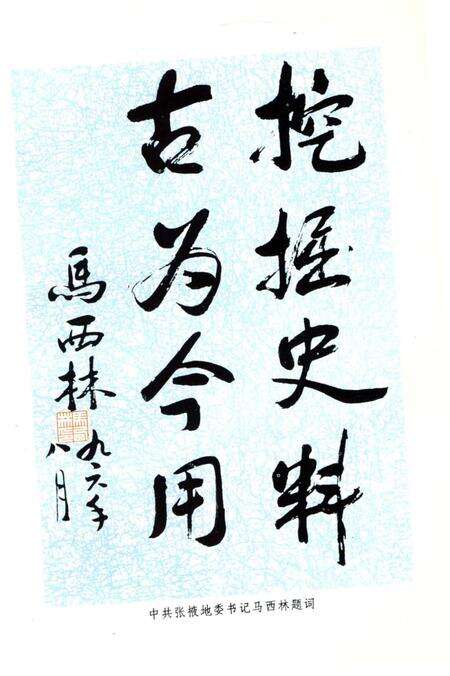 挖掘史料
古为今用
馬西林
九六年
八月
中共张掖地委书记马西林题词